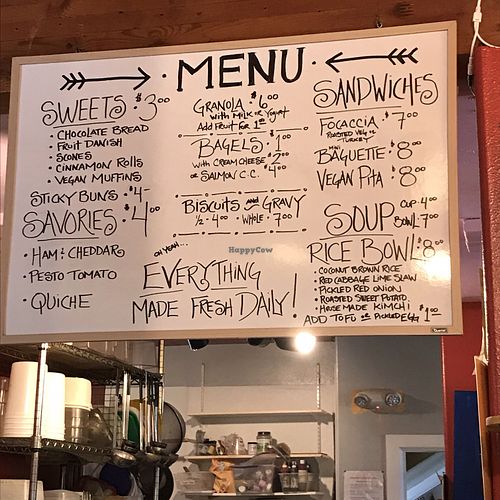 MENU
SWEETS $3.00
• CHOCOLATE BREAD
• FRUIT DANISH
• SCONES
• CINNAMON ROLLS
• VEGAN MUFFINS
STICKY BUNS $4-
SAVORIES $4.00
• HAM & CHEDDAR
• PESTO TOMATO
• QUICHE
GRANOLA $6.00
with MILK or Yogurt
Add Fruit for 1.00
BAGELS $1.00
WITH CREAM CHEESE $2.00
or SALMON C.C. $4.00
BISCUITS and GRAVY
1/2 - 4.00 • WHOLE - 7.00
OH YEAH...
EVERYTHING
MADE FRESH DAILY!
SANDWICHES
FOCACCIA $7.00
ROASTED VEG or
TURKEY
MINI
BAGUETTE $8.00
VEGAN PITA $8.00
SOUP CUP 4.00
BOWL 7.00
RICE BOWL $8.00
• COCONUT BROWN RICE
• RED CABBAGE LIME SLAW
• PICKLED RED ONION
• ROASTED SWEET POTATO
• HOUSE MADE KIMCHI
ADD TOFU or PICKLED EGG $1.00
HappyCow